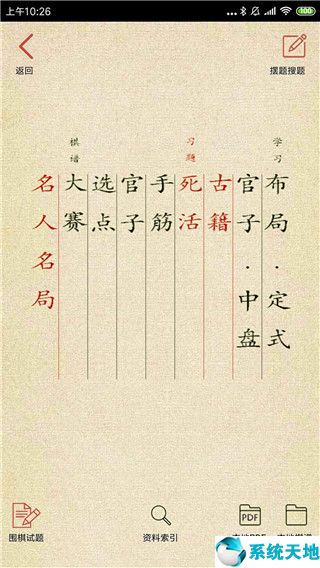 上午10:26
100
返回
摆题搜题
学习
布局·定式
官子·中盘
习题
古籍
死活
手筋
官子
选点
棋谱
大赛
名人名局
围棋试题
资料索引
PDF
系统天地